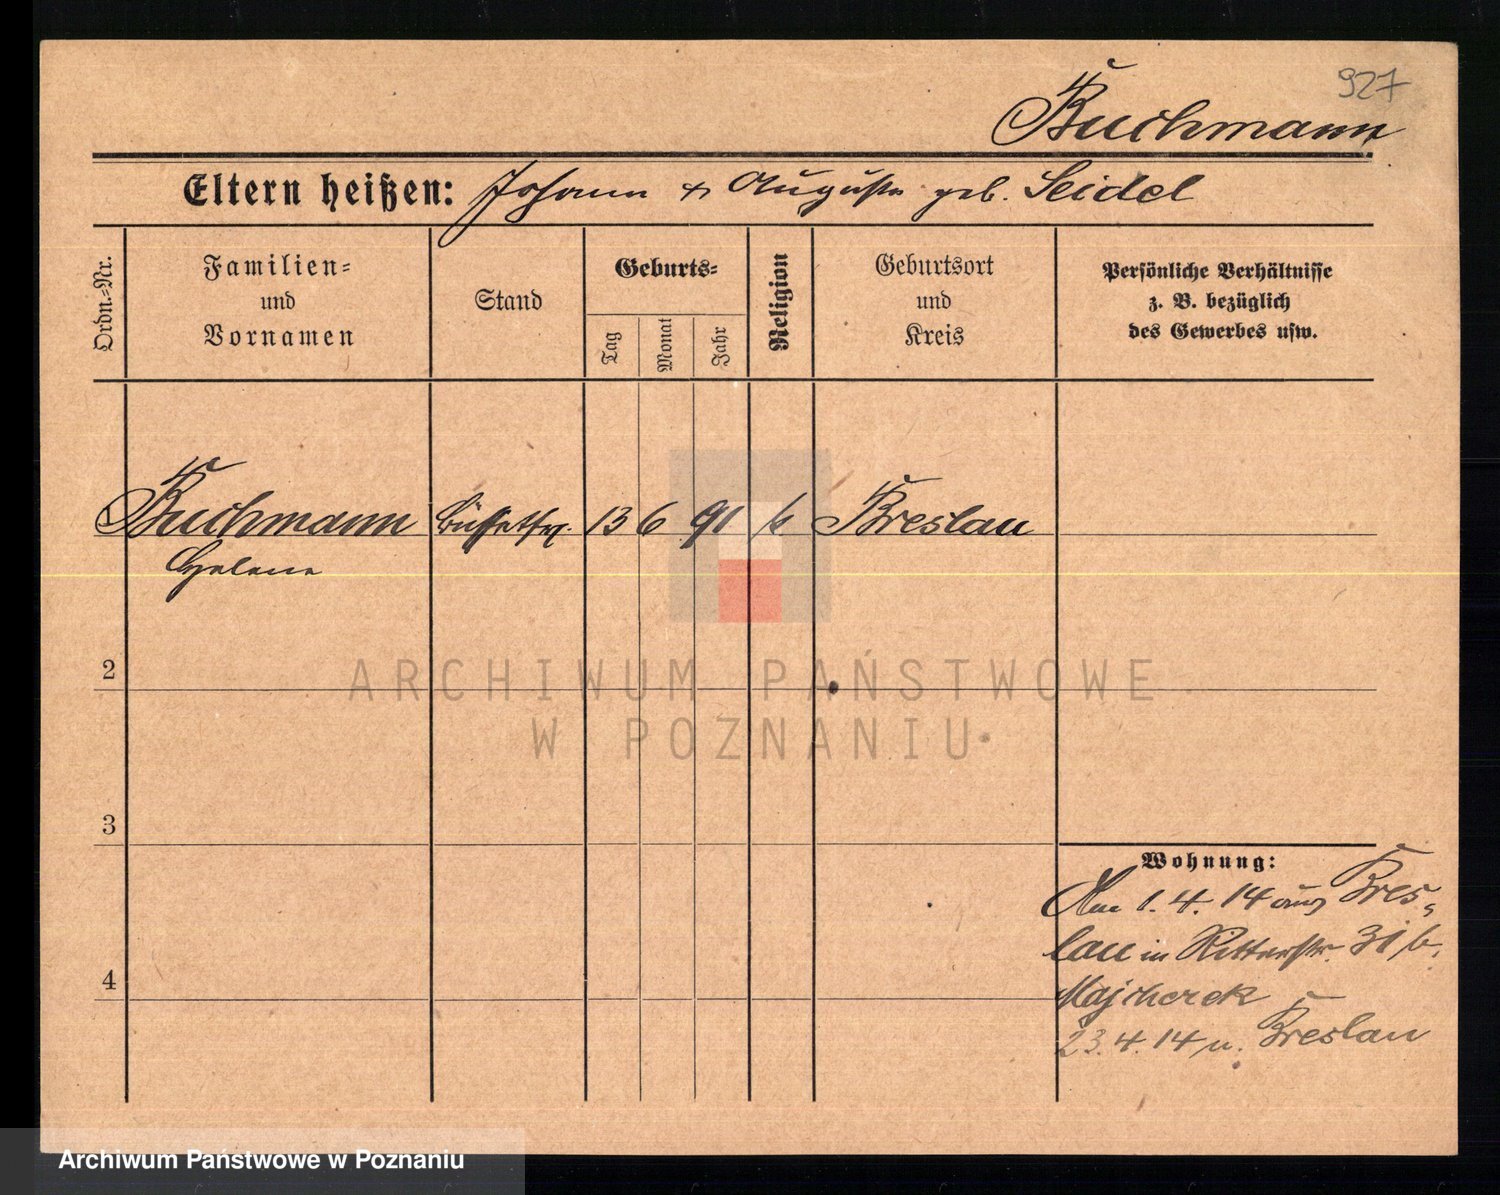 927
Buchmann
Eltern heißen: Johann & Auguste geb. Seidel
Ordn.-Nr.
Familien-
und
Vornamen
Stand
Geburts-
Tag
Monat
Jahr
Religion
Geburtsort
und
Kreis
Persönliche Verhältnisse
z. B. bezüglich
des Gewerbes usw.
Buchmann 13 6 91 k Breslau
Helene
2
3
4
Wohnung:
Am 1. 4. 14 aus Bres-
lau in Ritterstr. 31 b.
Majcherek
23. 4. 14 n. Breslau
ARCHIWUM PAŃSTWOWE
W POZNANIU
Archiwum Państwowe w Poznaniu